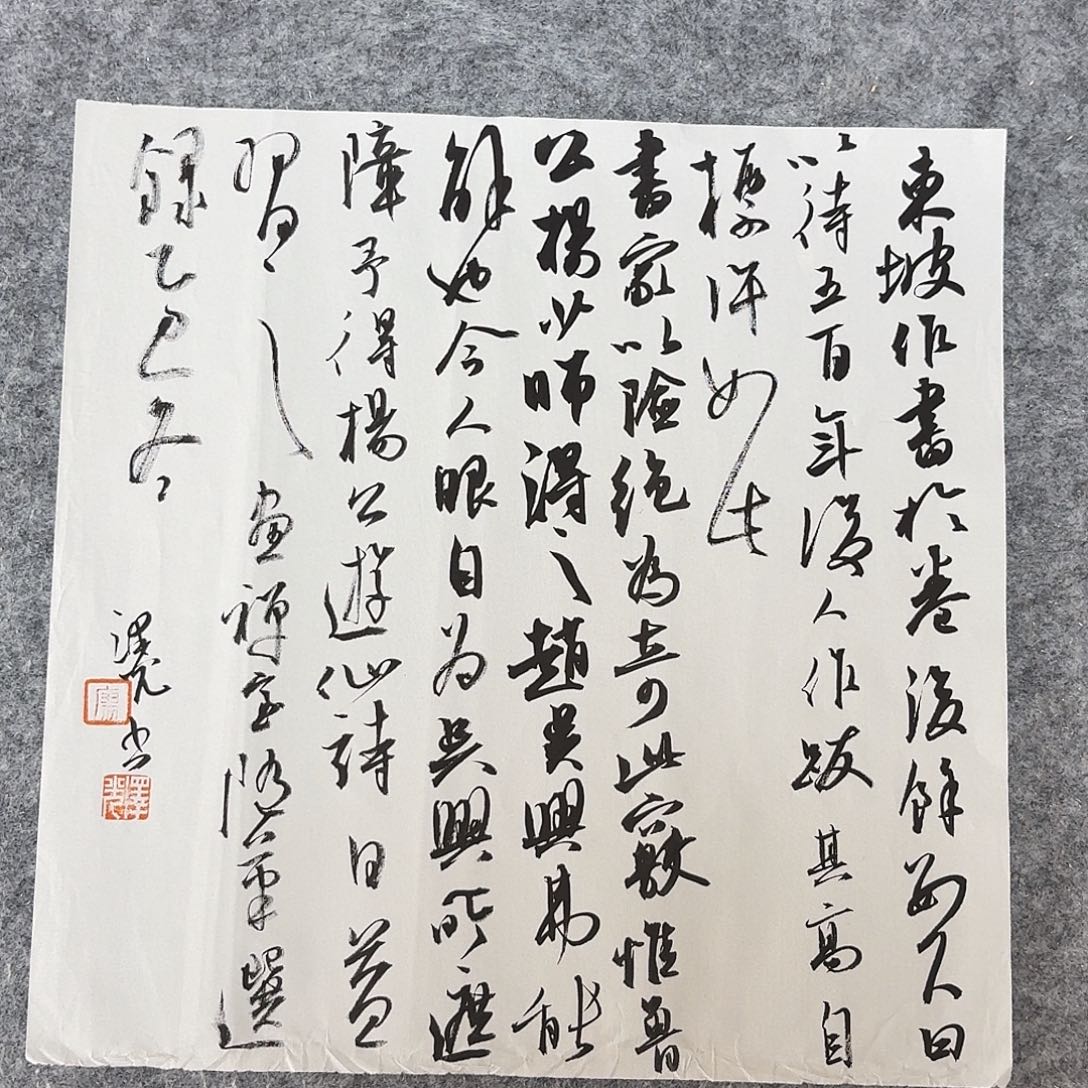 東坡作書於卷後餘數尺曰
以待五百年後人作跋其高自
標許如此
書家以險絕為奇此竅惟魯
公楊少師得之趙吳興弗能
解也今人眼目為吳興所遮
障予得楊公遊仙詩日益
習之畫禪室隨筆選
錄乙巳冬
澤光书